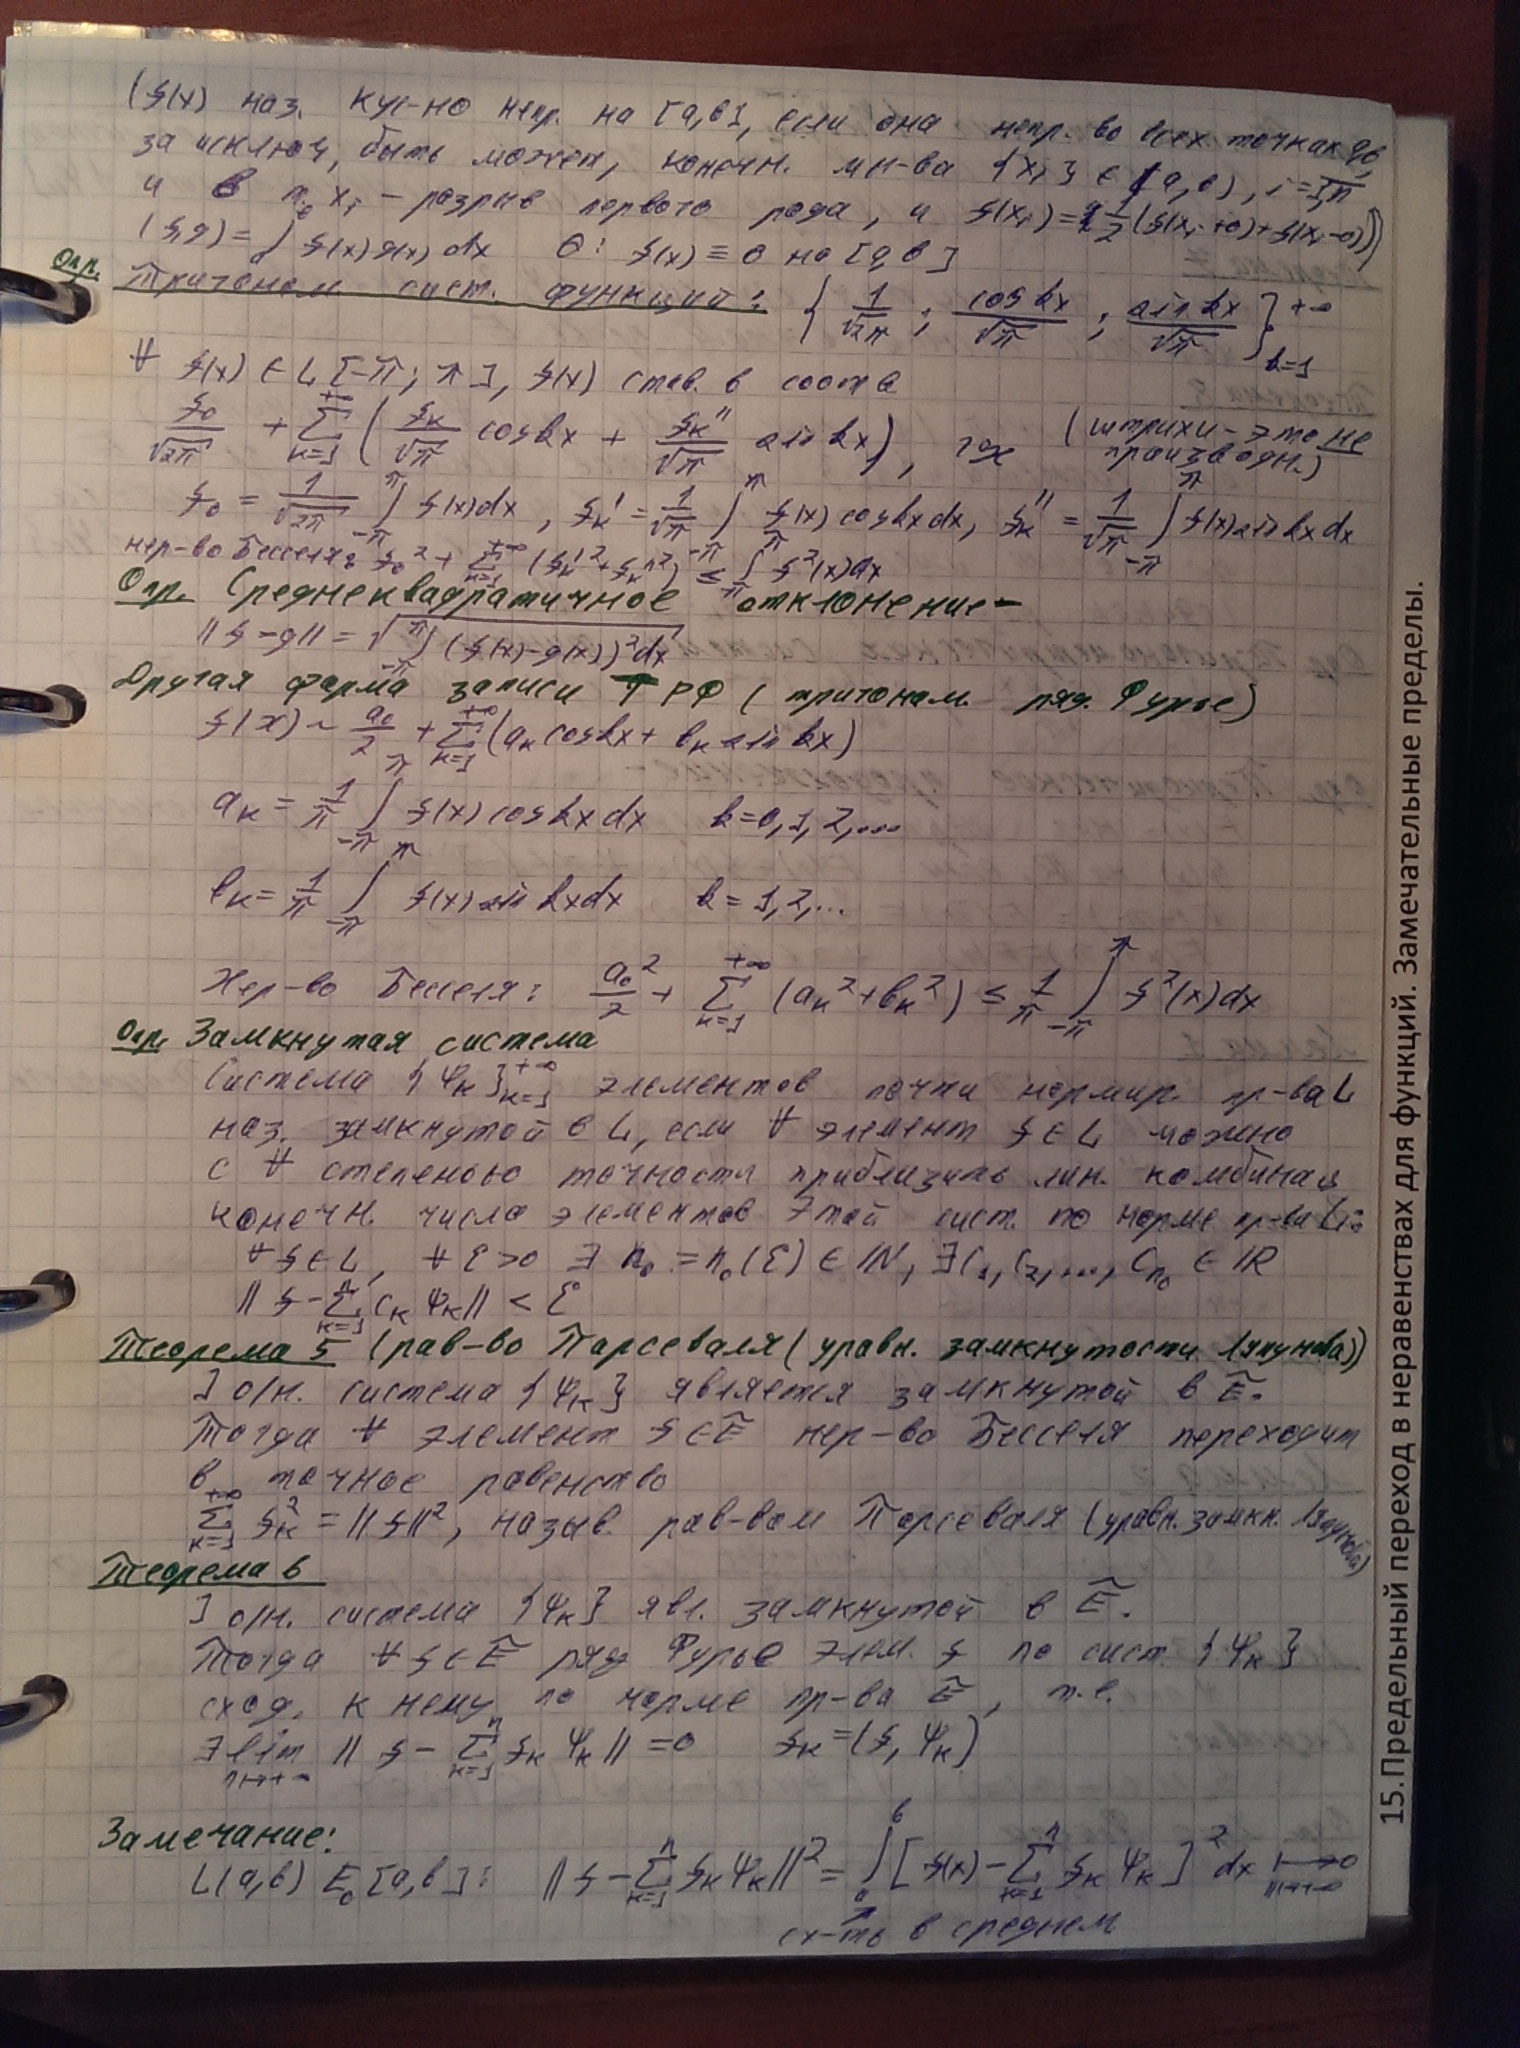 (f(x) наз. кус-но непр. на [a,b], если она непр. во всех точках [a,b],
за исключ, быть может, конечн. мн-ва {xᵢ} ∈ (a,b), i=1,n
и в т. xᵢ - разрыв первого рода, и f(xᵢ)=½(f(xᵢ+0)+f(xᵢ-0)))
(f,g)=∫ f(x)g(x)dx θ: f(x)≡0 на [a,b]
Опр. Тригоном. сист. функций: {1/√2π ; cos kx/√π ; sin kx/√π}_{k=1}^{+∞}
∀ f(x) ∈ L[-π; π], f(x) став. в соотв
f₀/√2π + Σ_{k=1}^{+∞} (fₖ/√π cos kx + fₖ''/√π sin kx), где (штрихи - это не
производн.)
f₀ = 1/√2π ∫_{-π}^{π} f(x)dx, fₖ' = 1/√π ∫_{-π}^{π} f(x) cos kx dx, fₖ'' = 1/√π ∫_{-π}^{π} f(x) sin kx dx
нер-во Бесселя: f₀² + Σ_{k=1}^{+∞} (fₖ'² + fₖ''²) ≤ ∫_{-π}^{π} f²(x)dx
Опр. Среднеквадратичное отклонение -
||f-g|| = √(∫_{-π}^{π} (f(x)-g(x))² dx)
Другая форма записи ТРФ (тригоном. ряд. Фурье)
f(x) ~ a₀/2 + Σ_{k=1}^{+∞} (aₖ cos kx + bₖ sin kx)
aₖ = 1/π ∫_{-π}^{π} f(x) cos kx dx k=0,1,2,...
bₖ = 1/π ∫_{-π}^{π} f(x) sin kx dx k=1,2,...
Нер-во Бесселя: a₀²/2 + Σ_{k=1}^{+∞} (aₖ²+bₖ²) ≤ 1/π ∫_{-π}^{π} f²(x)dx
Опр. Замкнутая система
Система {Ψₖ}_{k=1}^{+∞} элементов почти нормир. пр-ва L
наз. замкнутой в L, если ∀ элемент f ∈ L можно
с ∀ степенью точности приблизить лин. комбинац
конечн. числа элементов этой сист. по норме пр-ва L:
∀ f ∈ L, ∀ ε>0 ∃ n₀ = n₀(ε) ∈ ℕ, ∃ C₁, C₂, ..., C_{n₀} ∈ ℝ
||f - Σ_{k=1}^{n} Cₖ Ψₖ|| < ε
Теорема 5 (рав-во Парсеваля (уравн. замкнутости Ляпунова))
] о/н. система {Ψₖ} является замкнутой в Ẽ.
Тогда ∀ элемент f ∈ Ẽ нер-во Бесселя переходит
в точное равенство
Σ_{k=1}^{+∞} fₖ² = ||f||², назыв. рав-вом Парсеваля (уравн. замкн. Ляпунова)
Теорема 6
] о/н. система {Ψₖ} явл. замкнутой в Ẽ.
Тогда ∀ f ∈ Ẽ ряд Фурье элем. f по сист. {Ψₖ}
сход. к нему по норме пр-ва Ẽ, т.е.
∃ lim_{n→+∞} ||f - Σ_{k=1}^{n} fₖ Ψₖ|| = 0 fₖ = (f, Ψₖ)
Замечание:
L(a,b) E₀[a,b]: ||f - Σ_{k=1}^{n} fₖ Ψₖ||² = ∫_{a}^{b} [f(x) - Σ_{k=1}^{n} fₖ Ψₖ]² dx ⟼_{n→+∞} 0
сх-ть в среднем
15.Предельный переход в неравенствах для функций. Замечательные пределы.